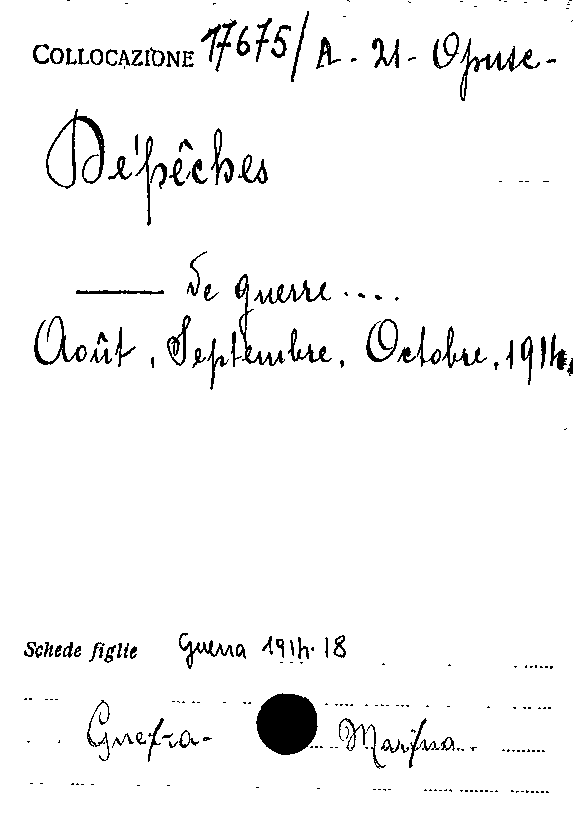 COLLOCAZIONE 17675/A. 21- Opusc-
Dépêches
—— de guerre....
Août, Septembre, Octobre, 1914,
Schede figlie Guerra 1914-18